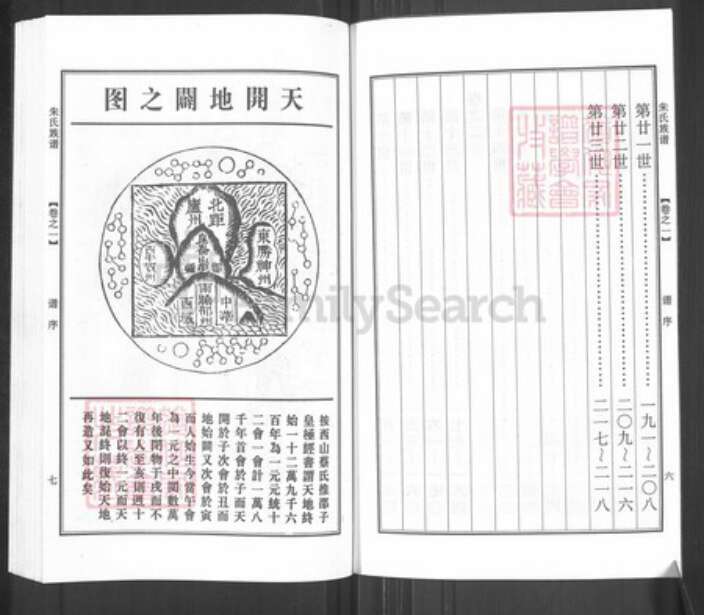 朱氏族谱
【卷之一】
谱序
六
第廿一世……一九一~二〇八
第廿二世……二〇九~二一六
第廿三世……二一七~二一八
天開地闢之图
北距
盧州
東勝神州
中華
西域
按西山蔡氏推邵子
皇極經書謂天地終
始一十二萬九千六
百年為一元元統十
二會一會計一萬八
千年首會於子而天
開於子次會於丑而
地始闢又次會於寅
而人始生今當午會
為一元之中閱數萬
年後閉物于戌而不
復有人至亥則週十
二會以終一元而天
地混終則復始天地
再造又如此矣
朱氏族谱
【卷之一】
谱序
七
FamilySearch